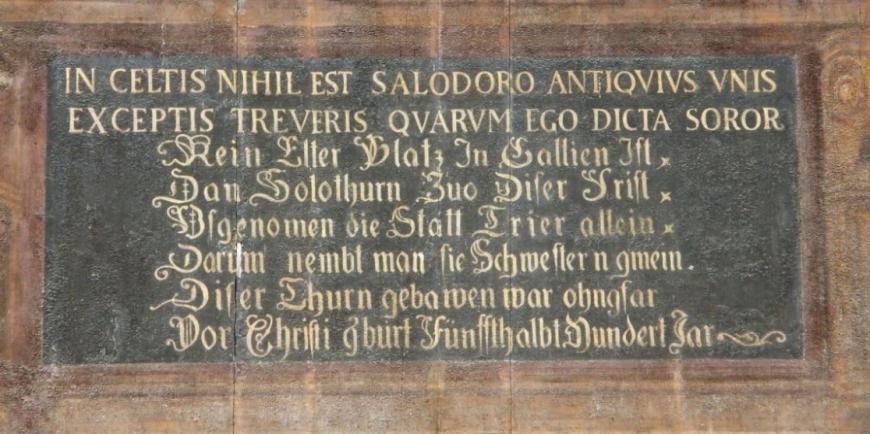 IN CELTIS NIHIL EST SALODORO ANTIQVIVS VNIS
EXCEPTIS TREVERIS QVARVM EGO DICTA SOROR
Kein Elter Platz In Gallien Ist,
Dan Solothurn Zuo Diser Frist,
Vsgenomen die Statt Trier allein,
Darum nembt man sie Schwestern gmein.
Diser Thurn gebawen war ohngfar
Vor Christi gburt Fünffthalbthundert Jar